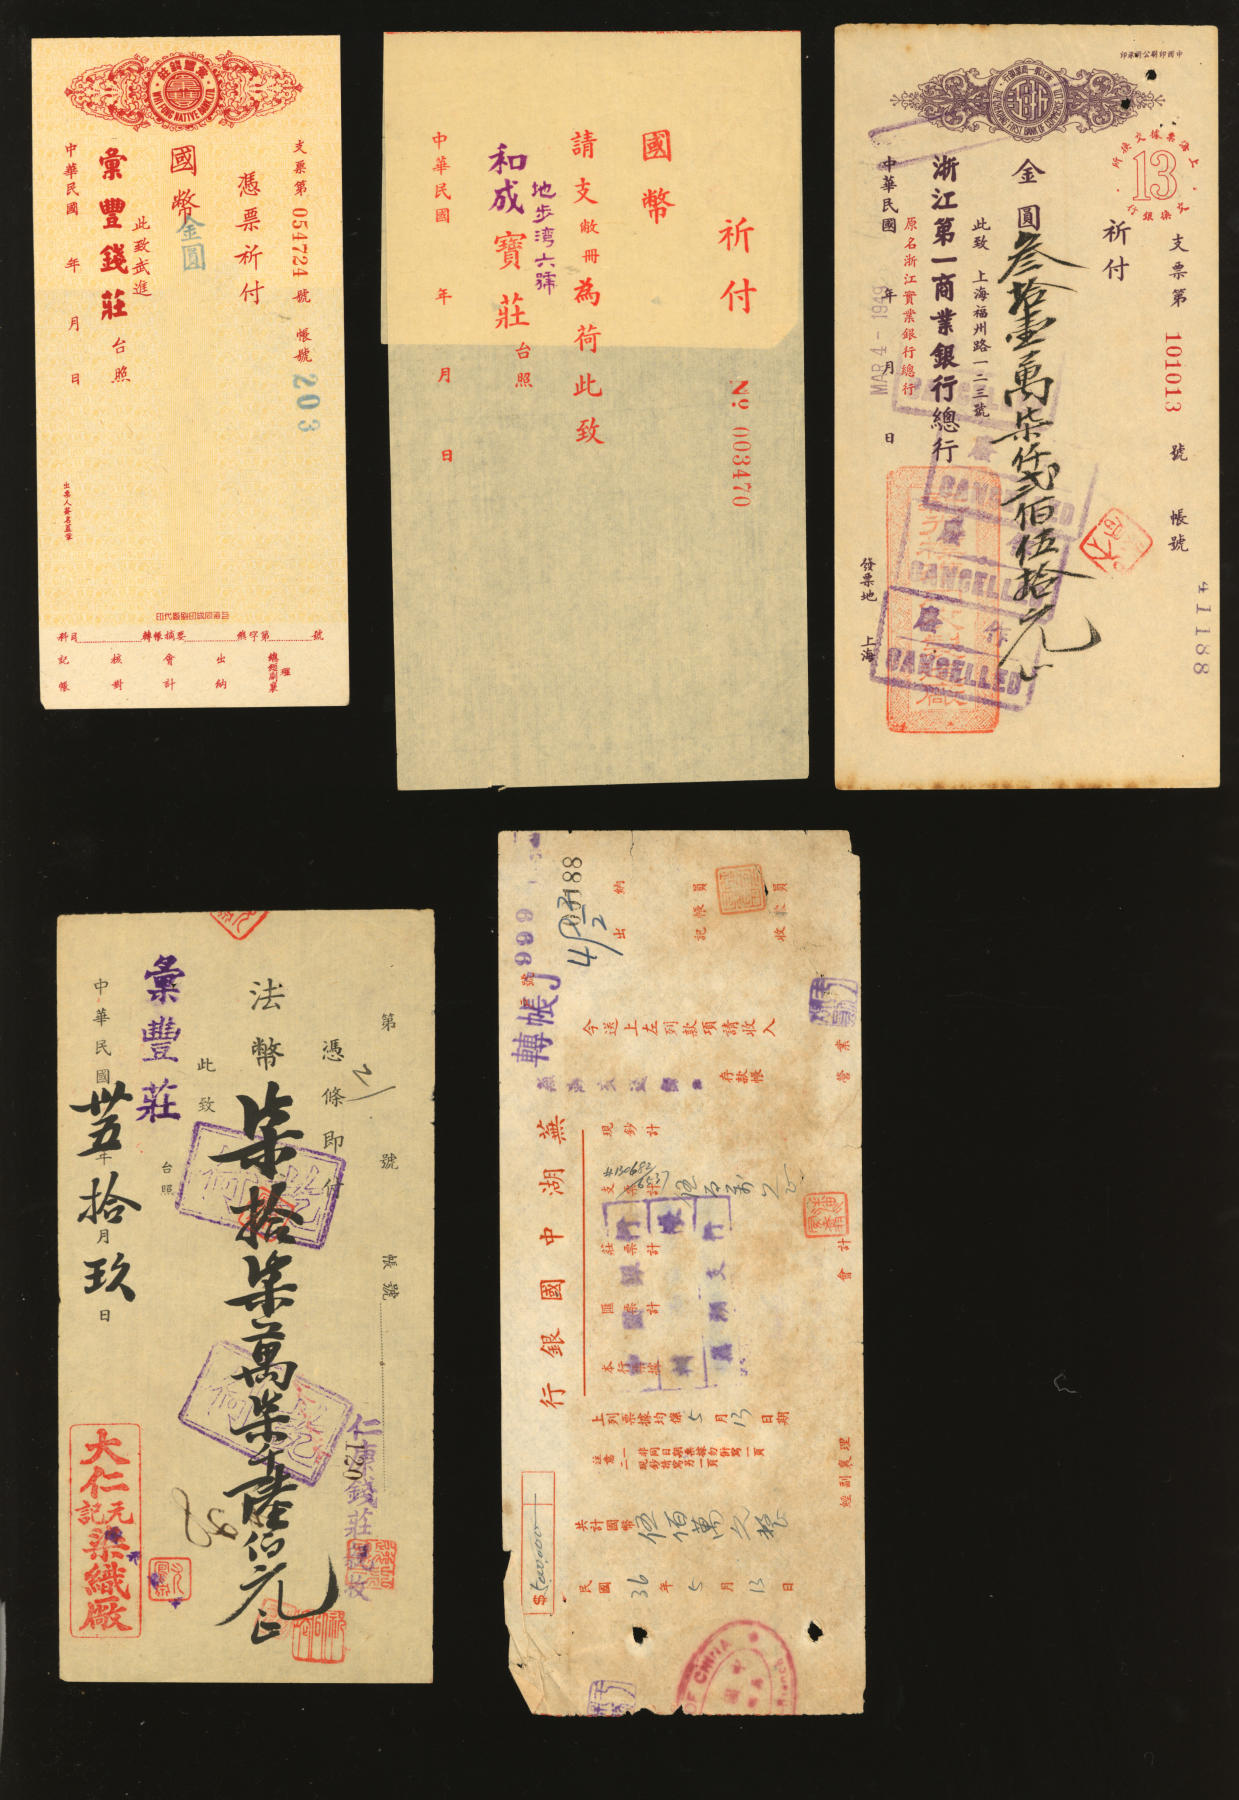 彙豐錢莊
WHI FONG NATIVE BANK LTD.
支票第 054724 號 帳號 203
憑票祈付
國幣
金圓
此致武進
彙豐錢莊 台照
中華民國 年 月 日
出票人簽名蓋章
科目 轉帳摘要 熊字第 號
記帳 核對 會計 出納
祈付 No 003470
國幣
請支敝冊為荷此致
地步湾六號
和成寶莊 台照
中華民國 年 月 日
FIRST BANK OF COMMERCE
上海票據交換所
13
交換銀行
支票第 101013 號 帳號 41188
祈付
金圓叁拾壹萬柒仟弍佰伍拾元正
此致 上海福州路一二三號
浙江第一商業銀行總行
原名浙江實業銀行總行
中華民國 年 月 日
MAR 4 - 1949
發票地 上海
作廢
CANCELLED
CANCELLED
作廢
CANCELLED
第 號 帳號
憑條即付
法幣柒拾柒萬柒千陸佰元正
此致
彙豐莊 台照
中華民國卅五年拾月玖日
大仁元記染織廠
120
仁東錢莊
轉帳
999
188
出納
記帳員
收款員
今送上左列款項請收入
存款帳
營業
蕪湖中國銀行
現鈔計
支票計
莊票計
匯票計
本行票據
會計
上列票據均係 5 月 13 日期
注意
一 非同日期票據勿併寫一頁
二 現鈔請寫另一頁
共計國幣 伍佰萬元整
民國 36 年 5 月 13 日
經副襄理
OF CHINA